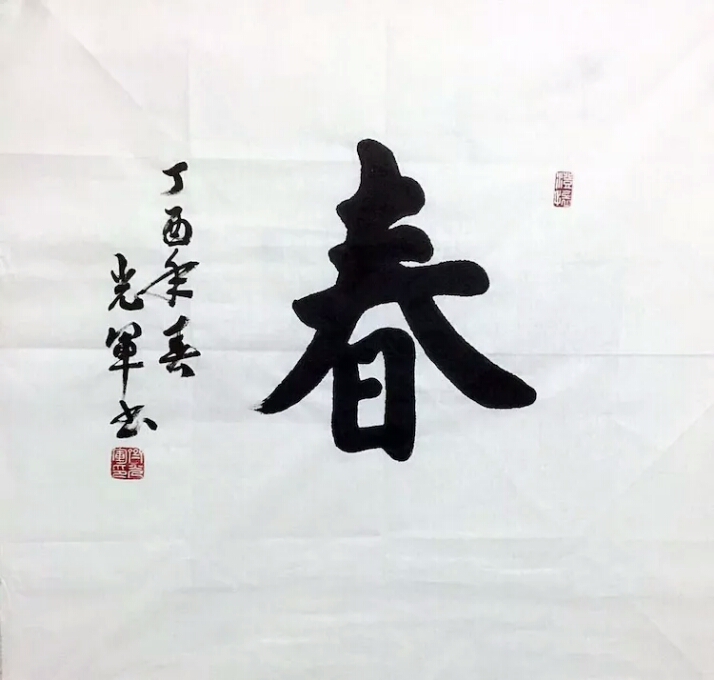 春
丁酉年春
光军书